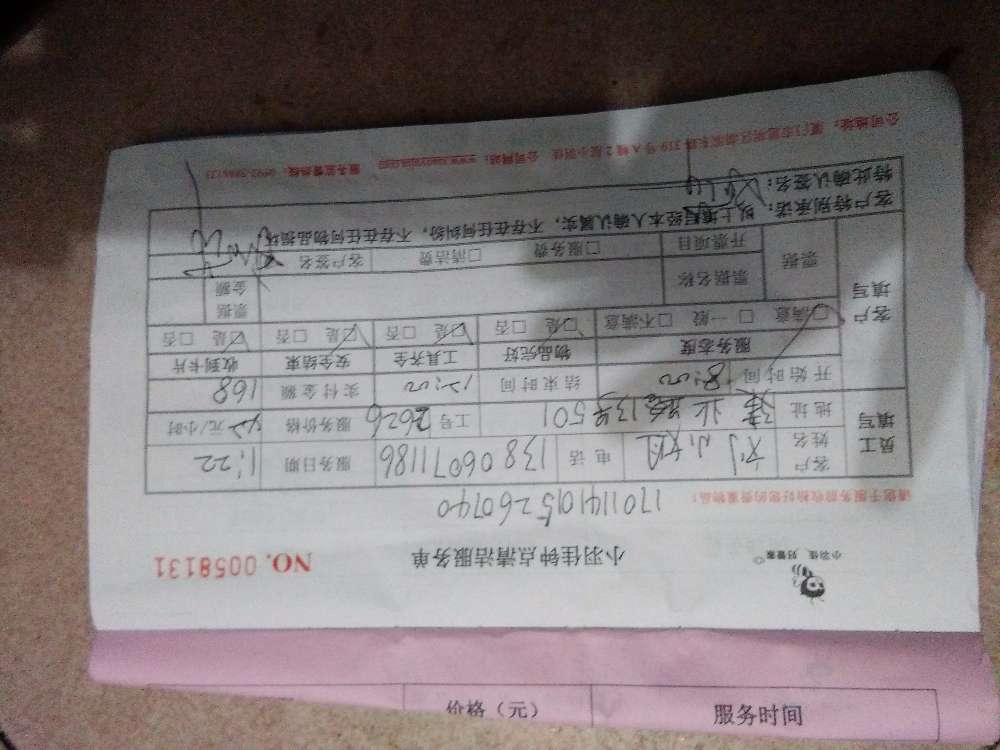 小羽佳 好管家
小羽佳钟点清洁服务单
NO. 0058131
1701141015260740
请您于服务前收检好您的贵重物品!
员工填写
客户姓名 刘小姐 电话 13806071186 服务日期 1.22
地址 13 501 工号 2626 服务价格 42元/小时
开始时间 8:00 结束时间 12:00 实付金额 168
客户填写
服务态度 物品完好 工具齐全 安全结束 收到卡片
□满意 □一般 □不满意 □是 □否 □是 □否 □是 □否 □是 □否
票据 票据名称 票据金额
开票项目 □服务费 □清洁费 客户签名
客户特别承诺: 以上填写经本人确认属实,不存在任何纠纷,不存在任何物品损坏
特此确认签名:
公司地址: 厦门市思明区 319号A幢2层小羽佳 公司网站: 服务监督热线:
价格(元) 服务时间